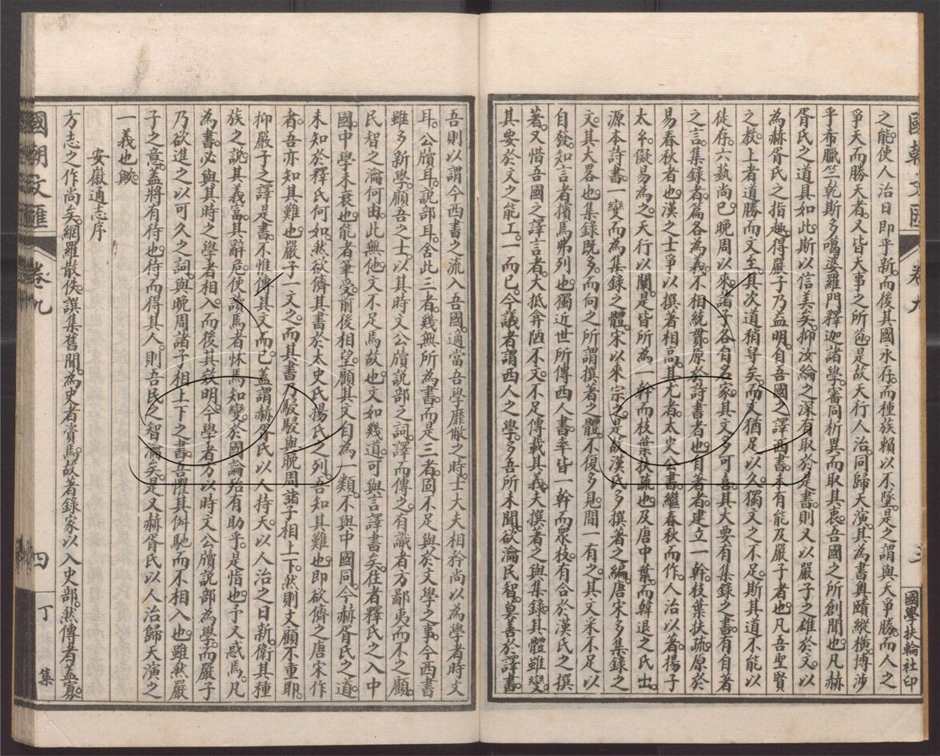 國朝文匯
卷九
三
國學扶輪社印
之能使人治日即乎新而後其國永存而種族賴以不墜是之謂與天爭勝而人之
爭天而勝天者又皆天事之所苞是故天行人治同歸天演其為書奧賾縱橫博涉
乎希臘竺乾斯多噶婆羅門釋迦諸學審同析異而取其衷吾國之所創聞也凡赫
胥氏之道具如此斯以信美矣抑汝綸之深有取於是書則又以嚴子之雄於文以
為赫胥氏之指趣得嚴子乃益明自吾國之譯西書未有能及嚴子者也凡吾聖賢
之教上者道勝而文至其次道稍卑矣而文猶足以久獨文之不足斯其道不能以
徒存六藝尚已晚周以來諸子各自名家其文多可喜其大要有集錄之書有自著
之言集錄者篇各為義不相統貫原於詩書者也自著者建立一幹枝葉扶疏原於
易春秋者也漢之士爭以撰著相高其尤者太史公書繼春秋而作人治以著揚子
太玄儗易為之天行以闡是皆所為一幹而枝葉扶疏也及唐中葉而韓退之氏出
源本詩書一變而為集錄之體宋以來宗之是故漢氏多撰著之編唐宋多集錄之
文其大略也集錄既多而向之所謂撰著之體不復多見間一有之其文采不足以
自發知言者擯焉弗列也獨近世所傳西人書率皆一幹而眾枝有合於漢氏之撰
著又惜吾國之譯言者大抵弇陋不文不足傳載其義夫撰著之與集錄其體雖變
其要於文之能工一而已今議者謂西人之學多吾所未聞欲瀹民智莫善於譯書
吾則以謂今西書之流入吾國適當吾學靡敝之時士大夫相矜尚以為學者時文
耳公牘耳說部耳舍此三者幾無所為書而是三者固不足與於文學之事今西書
雖多新學顧吾之士以其時文公牘說部之詞譯而傳之有識者方鄙夷而不之顧
民智之瀹何由此無他文不足焉故也文如幾道可與言譯書矣往者釋氏之入中
國中學未衰也能者筆受前後相望顧其文自為一類不與中國同今赫胥氏之道
未知於釋氏何如然欲儕其書於太史氏揚氏之列吾知其難也即欲儕之唐宋作
者吾亦知其難也嚴子一文之而其書乃駸駸與晚周諸子相上下然則文顧不重耶
抑嚴子之譯是書不惟自傳其文而已蓋謂赫胥氏以人持天以人治之日新衛其種
族之說其義富其辭危使讀焉者怵焉知變於國論殆有助乎是恉也予又惑焉凡
為書必與其時之學者相入而後其效明今學者方以時文公牘說部為學而嚴子
乃欲進之以可久之詞與晚周諸子相上下之書吾懼其舛馳而不相入也雖然嚴
子之意蓋將有待也待而得其人則吾民之智瀹矣是又赫胥氏以人治歸天演之
一義也歟
安徽通志序
方志之作尚矣網羅散佚譔集舊聞為史者資焉故著錄家以入史部然傳者蓋寡
國朝文匯
卷九
四
丁集